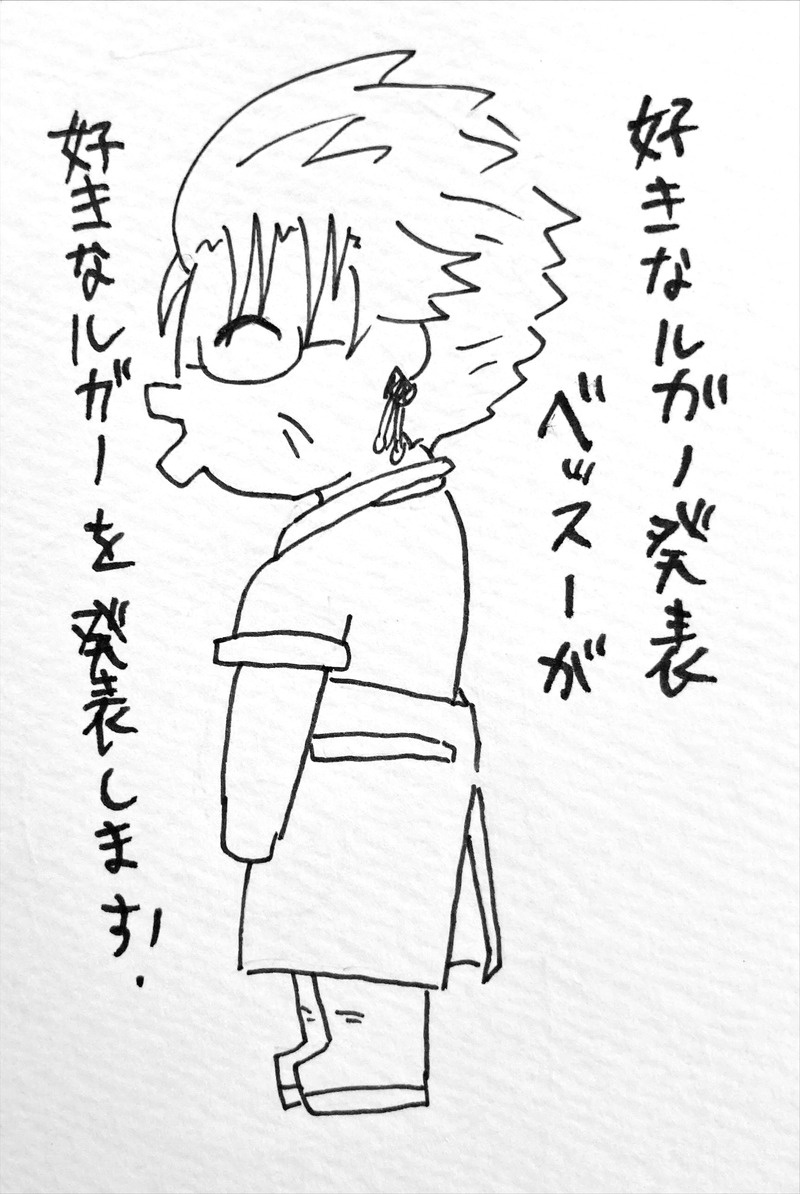 好きなルガー発表
ベッスーが
好きなルガーを発表します!